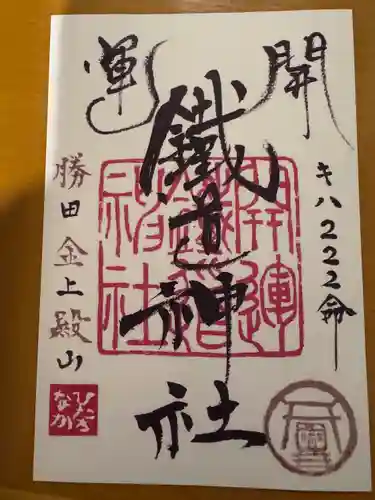 開運
キハ222命
鐵道神社
開運鐵道神社
勝田金上殿山
ひたちなか